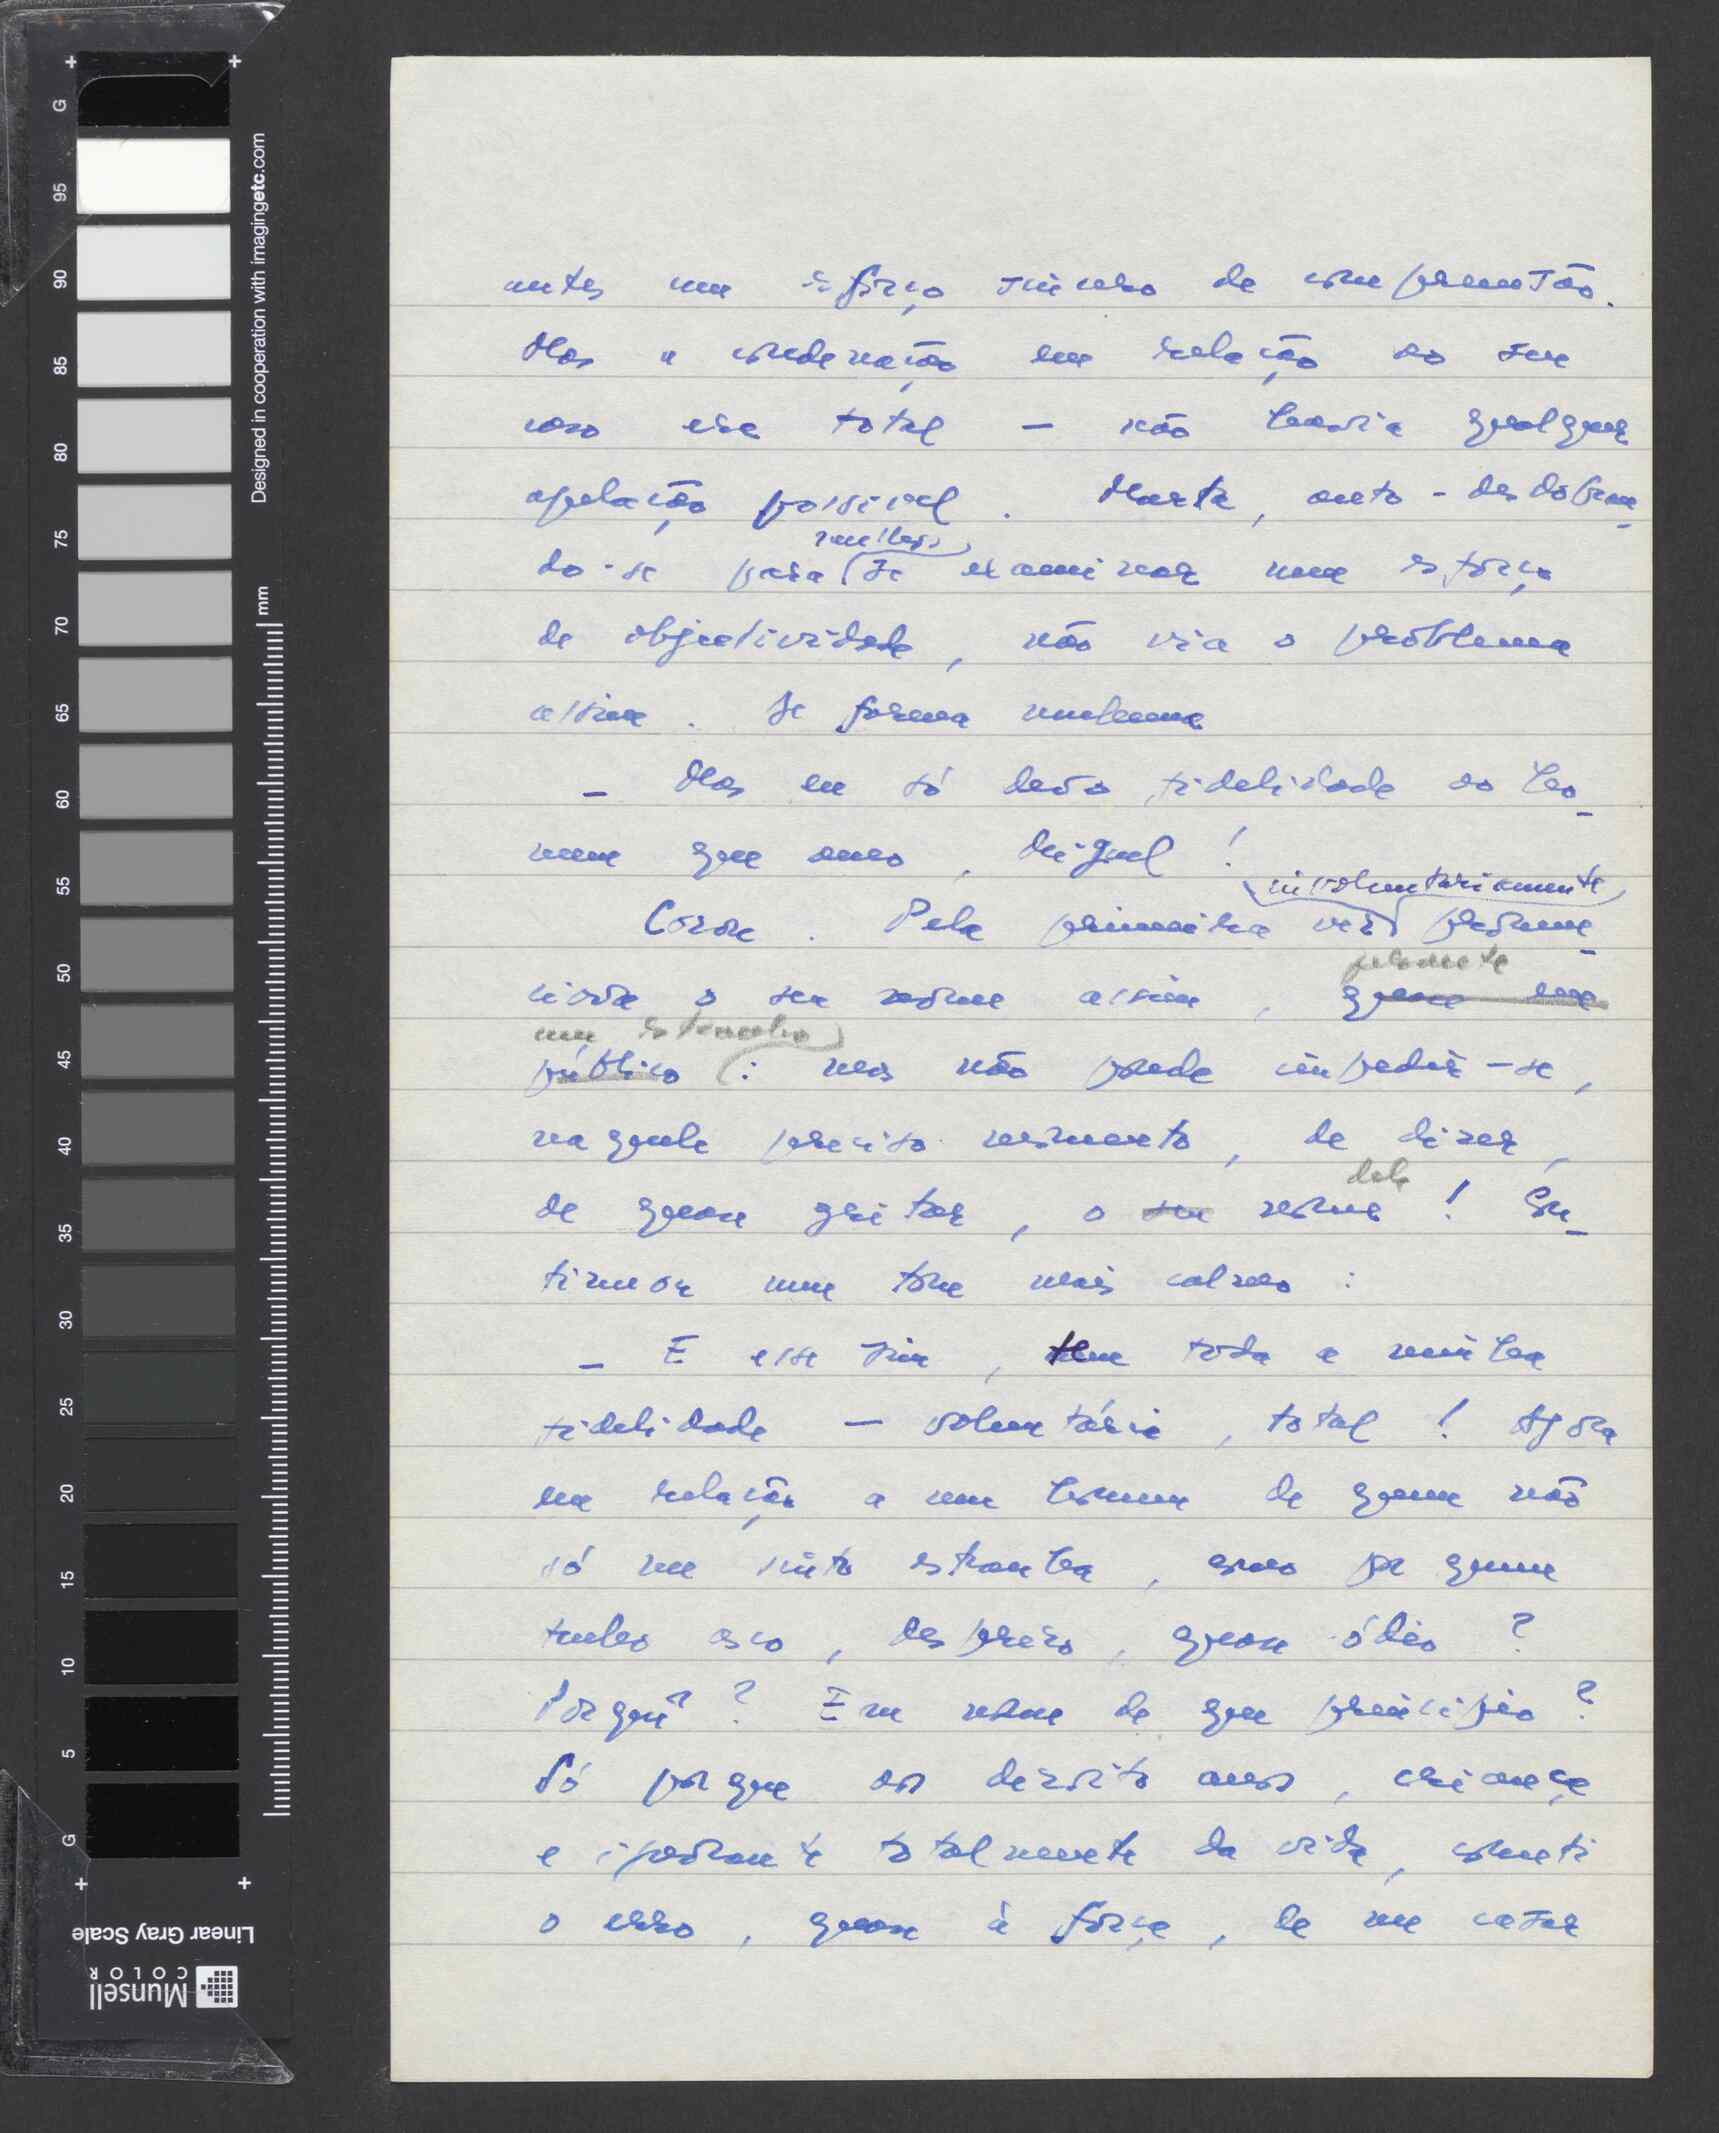 antes um esforço sincero de compreensão.
Mas a condenação em relação ao seu
caso era total – não havia qualquer
apelação possível. Marta, auto-desdobran-
do-se para se examinar num esforço
melhor
de objectividade, não via o problema
assim. De forma nenhuma
– Mas eu só devo fidelidade ao ho-
mem que amo, Miguel!
involuntariamente
Corou. Pela primeira vez pronun-
perante
ciava o seu nome assim, quase em
um estranho
público: mas não pode impedir-se,
naquele preciso momento, de dizer,
dele
de quase gritar, o seu nome! Con-
tinuou num tom mais calmo:
– E esse sim, tem toda a minha
fidelidade – voluntária, total! Agora
em relação a um homem de quem não
só me sinto estranha, como por quem
tenho asco, desprezo, quase ódio?
Porquê? Em nome de que princípio?
Só porque aos dezoito anos, criança
e ignorante totalmente da vida, cometi
o erro, quase à força, de me casar
Designed in cooperation with imagingetc.com
mm
G
95
90
85
80
75
70
65
60
55
50
45
40
35
30
25
20
15
10
5
G
Linear Gray Scale
Munsell
COLOR